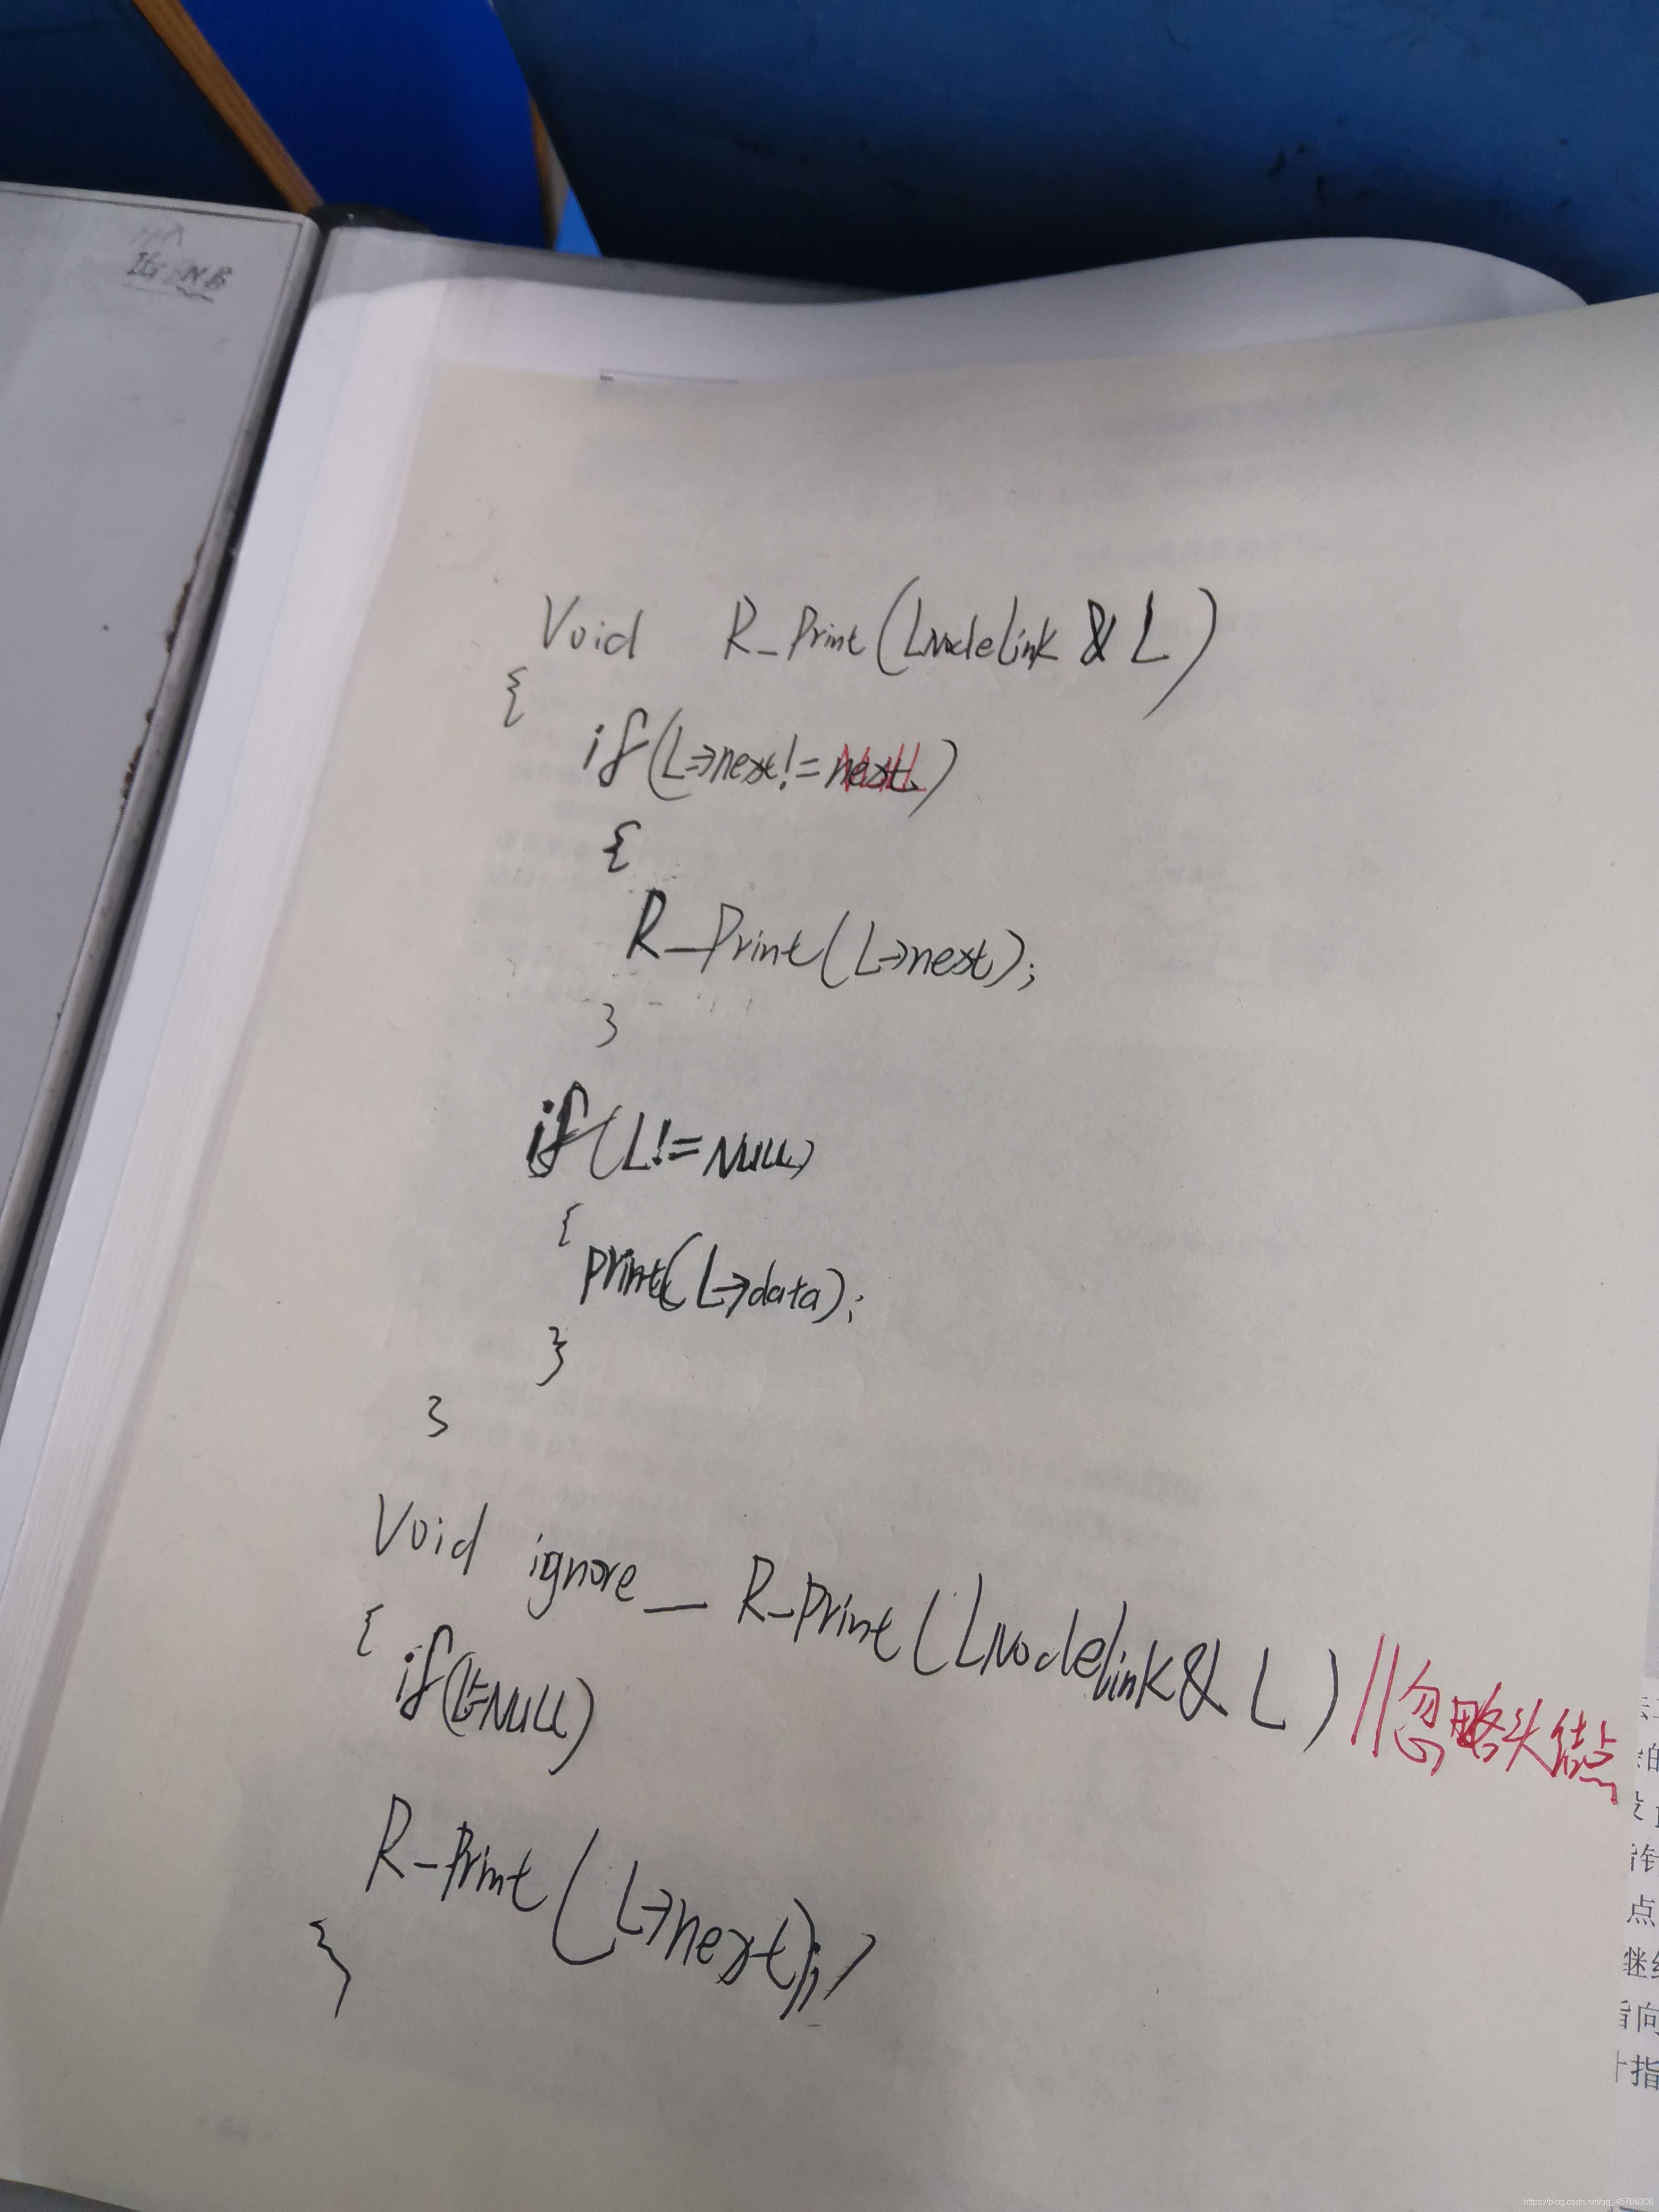 IG NB
Void R_Print(LNodelink & L)
{
if(L->next!=NULL)
{
R_Print(L->next);
}
if(L!=NULL)
{
print(L->data);
}
}
Void ignore_R_Print(LNodelink & L) //忽略头结点
{
if(L!=NULL)
R_Print(L->next);
}
的
点
继续
指向
指
https://blog.csdn.net/qq_45706306